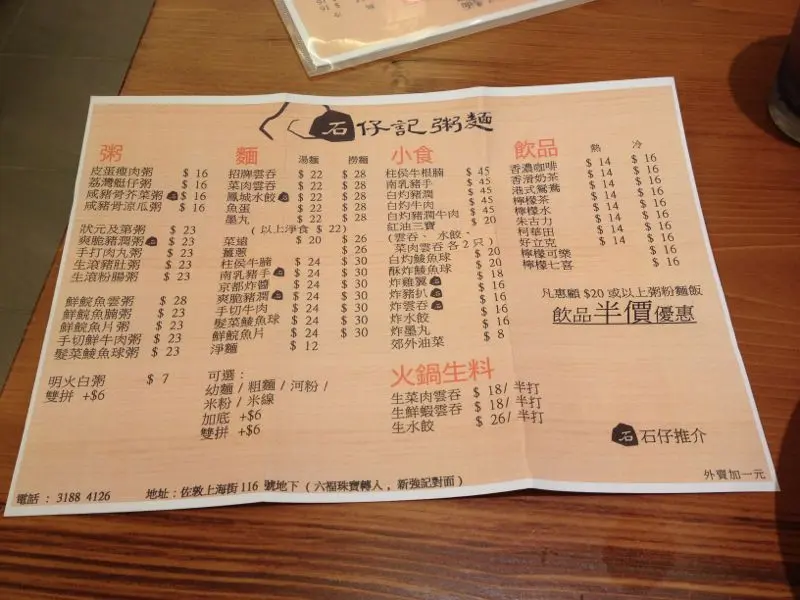 石仔記粥麵
粥
皮蛋瘦肉粥 $ 16
荔灣艇仔粥 $ 16
咸豬骨芥菜粥 $ 16
咸豬骨涼瓜粥 $ 16
狀元及第粥 $ 23
爽脆豬潤粥 $ 23
手打肉丸粥 $ 23
生滾豬肚粥 $ 23
生滾粉腸粥 $ 23
鮮鯇魚雲粥 $ 28
鮮鯇魚腩粥 $ 23
鮮鯇魚片粥 $ 23
手切鮮牛肉粥 $ 23
髮菜鯪魚球粥 $ 23
明火白粥 $ 7
雙拼 +$6
麵 湯麵 撈麵
招牌雲吞 $ 22 $ 28
菜肉雲吞 $ 22 $ 28
鳳城水餃 $ 22 $ 28
魚蛋 $ 22 $ 28
墨丸 $ 22 $ 28
(以上淨食 $ 22)
菜遠 $ 20 $ 26
薑蔥 $ 26
柱侯牛腩 $ 24 $ 30
南乳豬手 $ 24 $ 30
京都炸醬 $ 24 $ 30
爽脆豬潤 $ 24 $ 30
手切牛肉 $ 24 $ 30
髮菜鯪魚球 $ 24 $ 30
鮮鯇魚片 $ 24 $ 30
淨麵 $ 12
可選：
幼麵 / 粗麵 / 河粉 /
米粉 / 米線
加底 +$6
雙拼 +$6
小食
柱侯牛根腩 $ 45
南乳豬手 $ 45
白灼豬潤 $ 45
白灼牛肉 $ 45
白灼豬潤牛肉 $ 45
紅油三寶 $ 20
(雲吞、水餃、
菜肉雲吞各 2 只)
白灼鯪魚球 $ 20
酥炸鯪魚球 $ 20
炸雞翼 $ 18
炸豬扒 $ 16
炸雲吞 $ 16
炸水餃 $ 16
炸墨丸 $ 16
郊外油菜 $ 8
火鍋生料
生菜肉雲吞 $ 18/ 半打
生鮮蝦雲吞 $ 18/ 半打
生水餃 $ 26/ 半打
飲品 熱 冷
香濃咖啡 $ 14 $ 16
香滑奶茶 $ 14 $ 16
港式鴛鴦 $ 14 $ 16
檸檬茶 $ 14 $ 16
檸檬水 $ 14 $ 16
朱古力 $ 14 $ 16
柯華田 $ 14 $ 16
好立克 $ 14 $ 16
檸檬可樂 $ 16
檸檬七喜 $ 16
凡惠顧 $20 或以上粥粉麵飯
飲品半價優惠
石 石仔推介
外賣加一元
電話 : 3188 4126 地址 : 佐敦上海街 116 號地下 ( 六福珠寶轉人，新強記對面 )